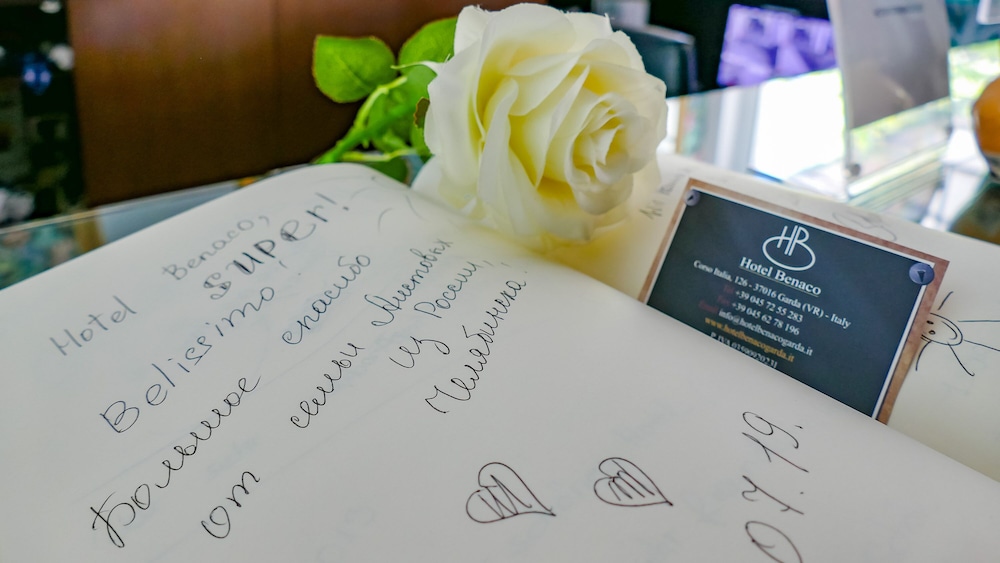 Hotel Benaco,
SUPER!
Belissimo,
Большое спасибо
от семьи Аистовых
из России,
Челябинска.
07.19.
HB
Hotel Benaco
Corso Italia, 126 - 37016 Garda (VR) - Italy
+39 045 72 55 283
+39 045 62 78 196
info@hotelbenacogarda.it
www.hotelbenacogarda.it
P. IVA